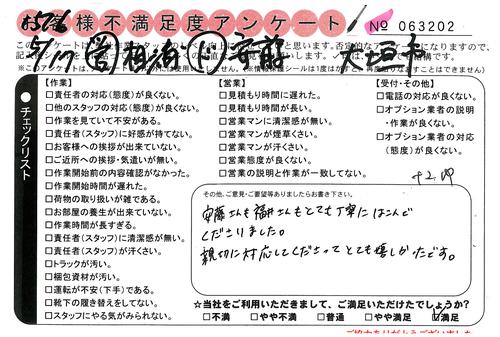 お客様不満足度アンケート
No 063202
大垣市
このチェックシートは1度はがすと、再度貼りなおすことはできません)
チェックリスト
【作業】
□責任者の対応(態度)が良くない。
□他のスタッフの対応(態度)が良くない。
□作業を見ていて不安がある。
□責任者(スタッフ)に好感が持てない。
□お客様への挨拶が出来ていない。
□ご近所への挨拶・気遣いが無い。
□作業開始前の内容確認がなかった。
□作業開始時間が遅れた。
□荷物の取り扱いが雑である。
□お部屋の養生が出来ていない。
□作業時間が長すぎる。
□責任者(スタッフ)に清潔感が無い。
□責任者(スタッフ)が汗くさい。
□トラックが汚い。
□梱包資材が汚い。
□運転が不安(下手)である。
□靴下の履き替えをしてない。
□スタッフにやる気がみられない。
【営業】
□見積もり時間に遅れた。
□見積もり時間が長い。
□営業マンに清潔感が無い。
□営業マンが煙草くさい。
□営業マンが汗くさい。
□営業態度が良くない。
□営業の説明と作業が一致してない。
【受付・その他】
□電話の対応が良くない。
□オプション業者の説明
・作業が良くない。
□オプション業者の対応
(態度)が良くない。
その他、ご意見・ご要望等ありましたらお書き下さい。
安藤さんも福井さんもとても丁寧にはこんで
くださりました。
親切に対応してくださってとても嬉しかったです。
☆当社をご利用いただきまして、ご満足いただけたでしょうか?
□不満 □やや不満 □普通 □やや満足 □満足
ご協力ありがとうございました